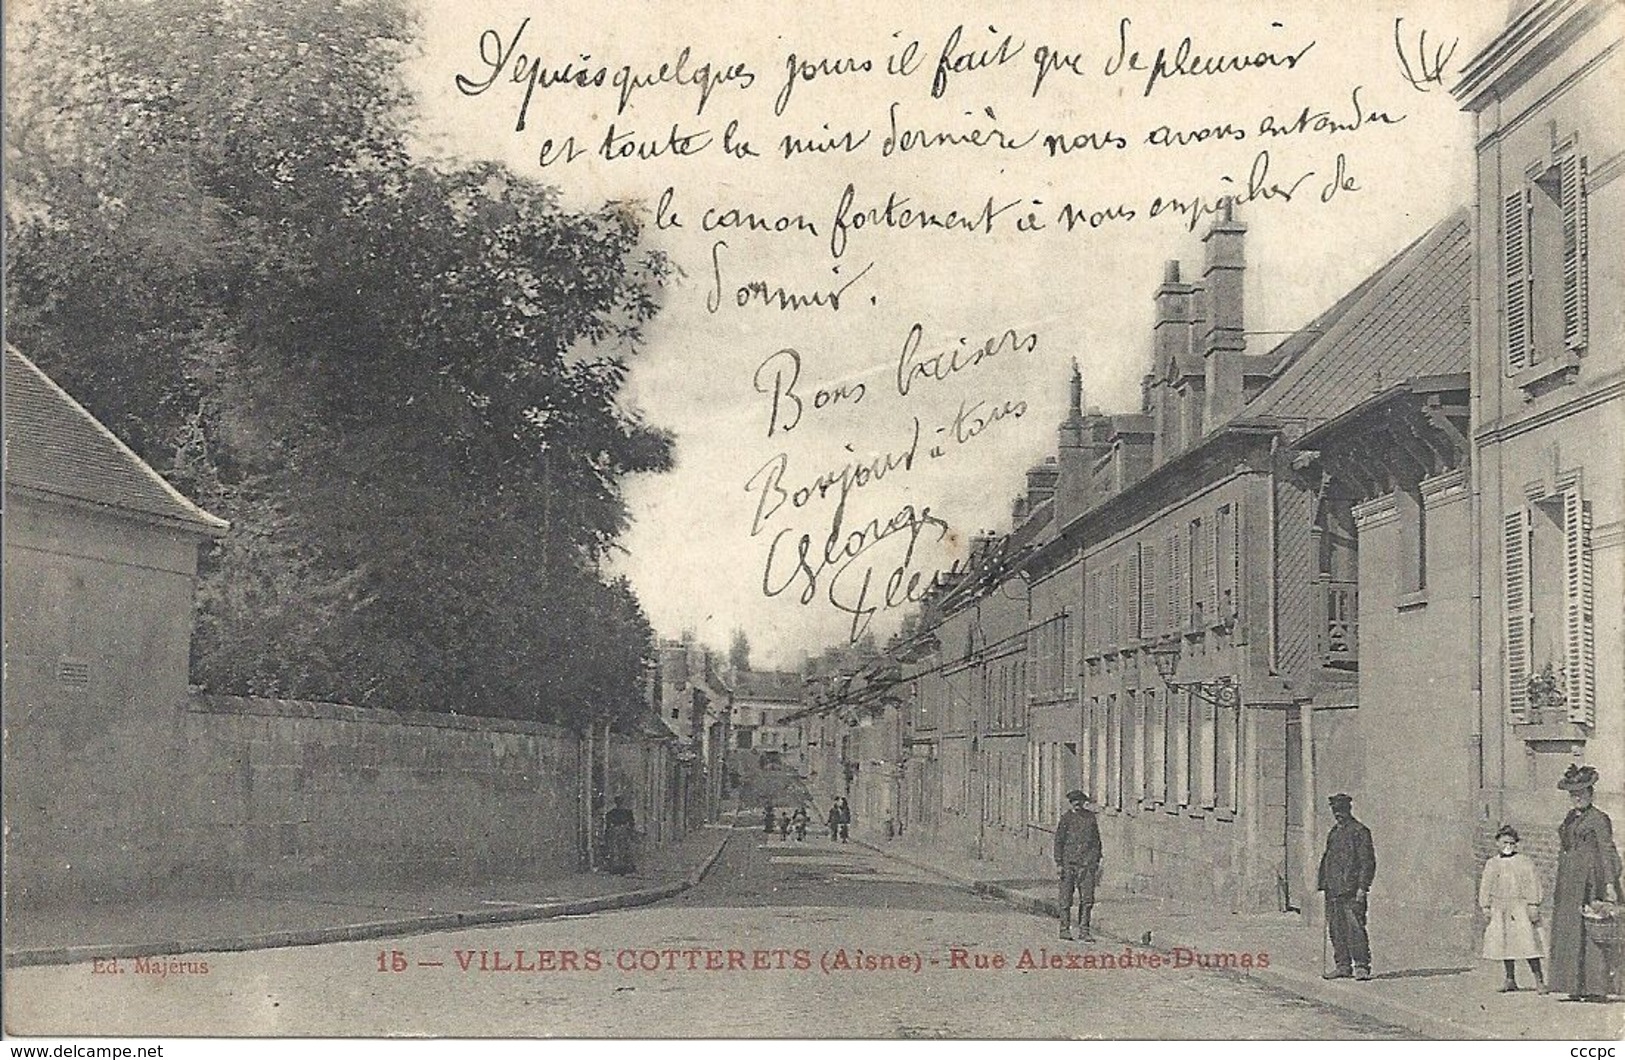 Depuis quelques jours il fait que de pleuvoir
et toute la nuit dernière nous avons entendu
le canon fortement à nous empêcher de
dormir.
Bons baisers
Bonjour à tous
Georges
Ed. Majérus
15 — VILLERS-COTTERETS (Aisne) - Rue Alexandre-Dumas
www.delcampe.net
cccpc